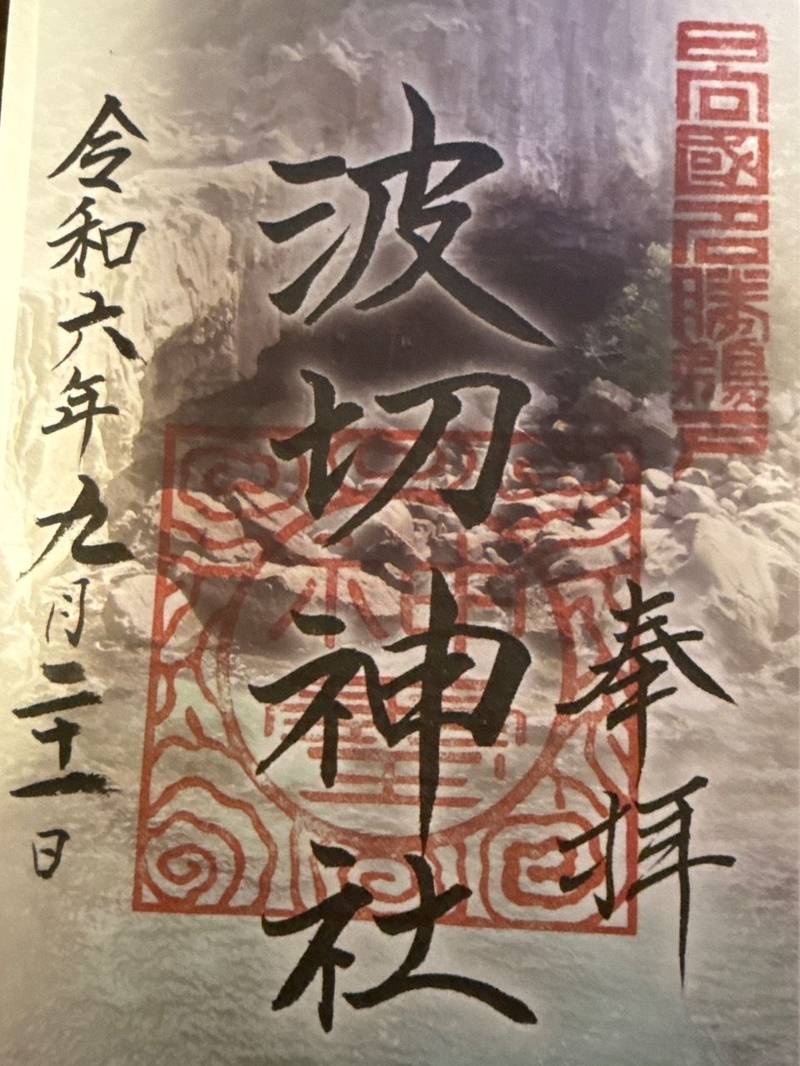 日向國名勝鵜戸
奉拝
波切神社
令和六年九月二十一日